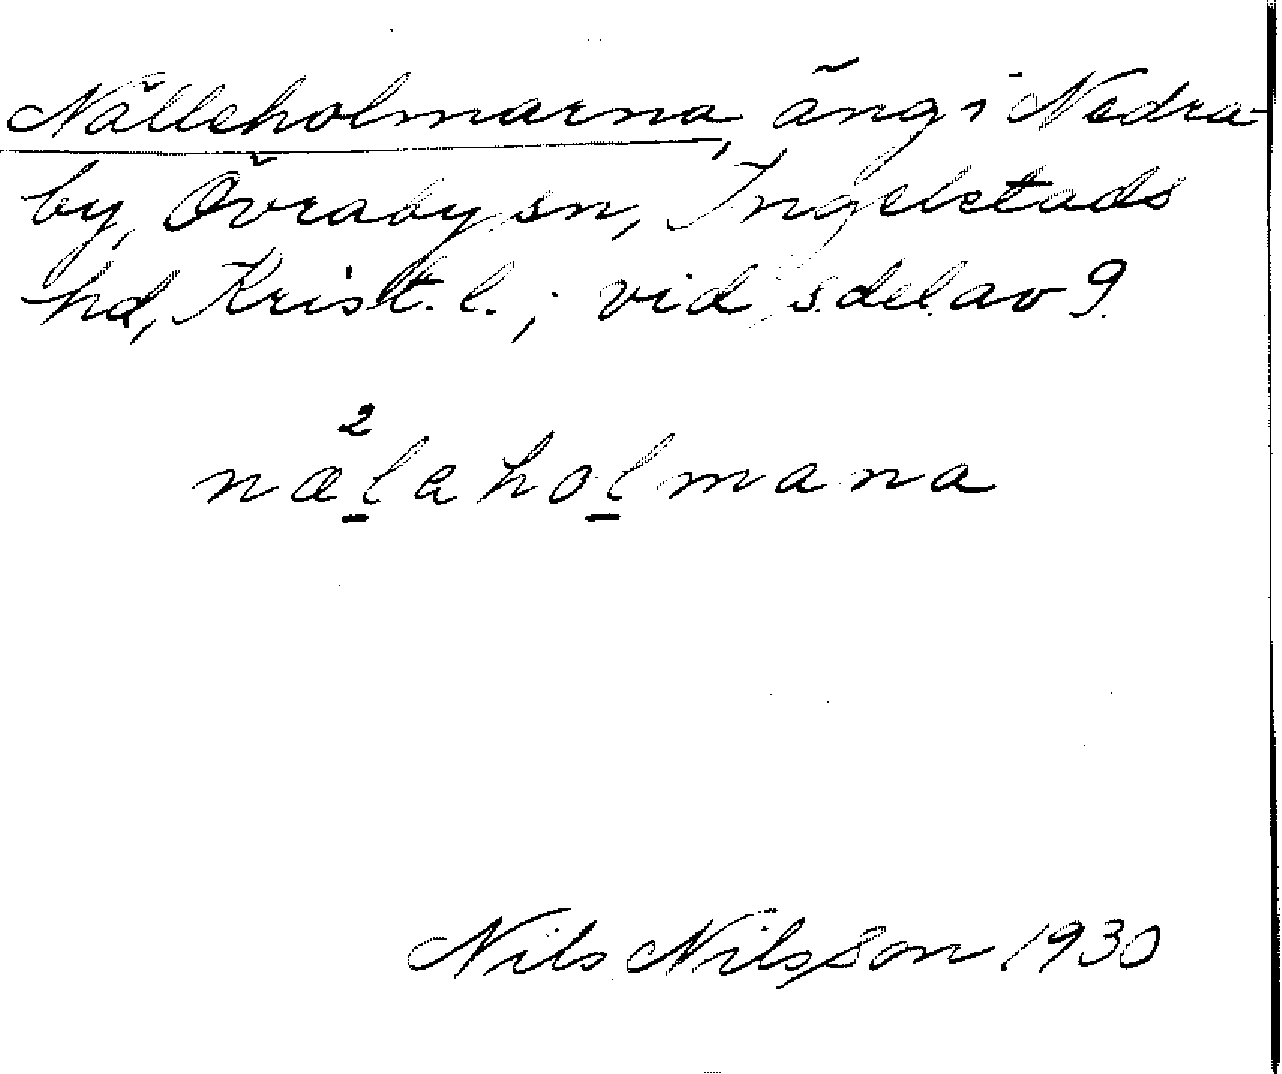 Nälleholmarna, äng i Nedra-
by, Övraby sn, Ingelstads
hd, Krist. l.; vid s. del. av 9.
2
nælaholmana
Nils Nilsson 1930